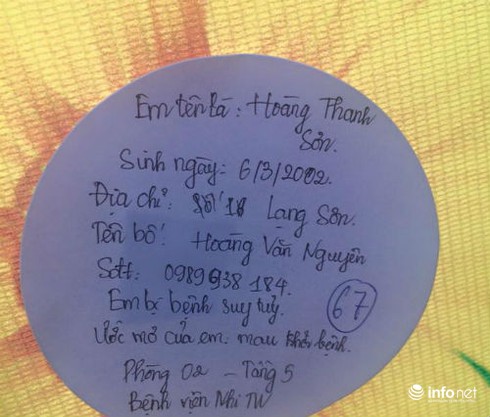 Em tên là: Hoàng Thanh
Sơn.
Sinh ngày: 6/3/2002.
Địa chỉ: Số 18 Lạng Sơn.
Tên bố: Hoàng Văn Nguyên
Sđt: 0989938184.
Em bị bệnh suy tủy.
67
Ước mơ của em: mau khỏi bệnh.
Phòng 02 - Tầng 5
Bệnh viện Nhi TW
infonet